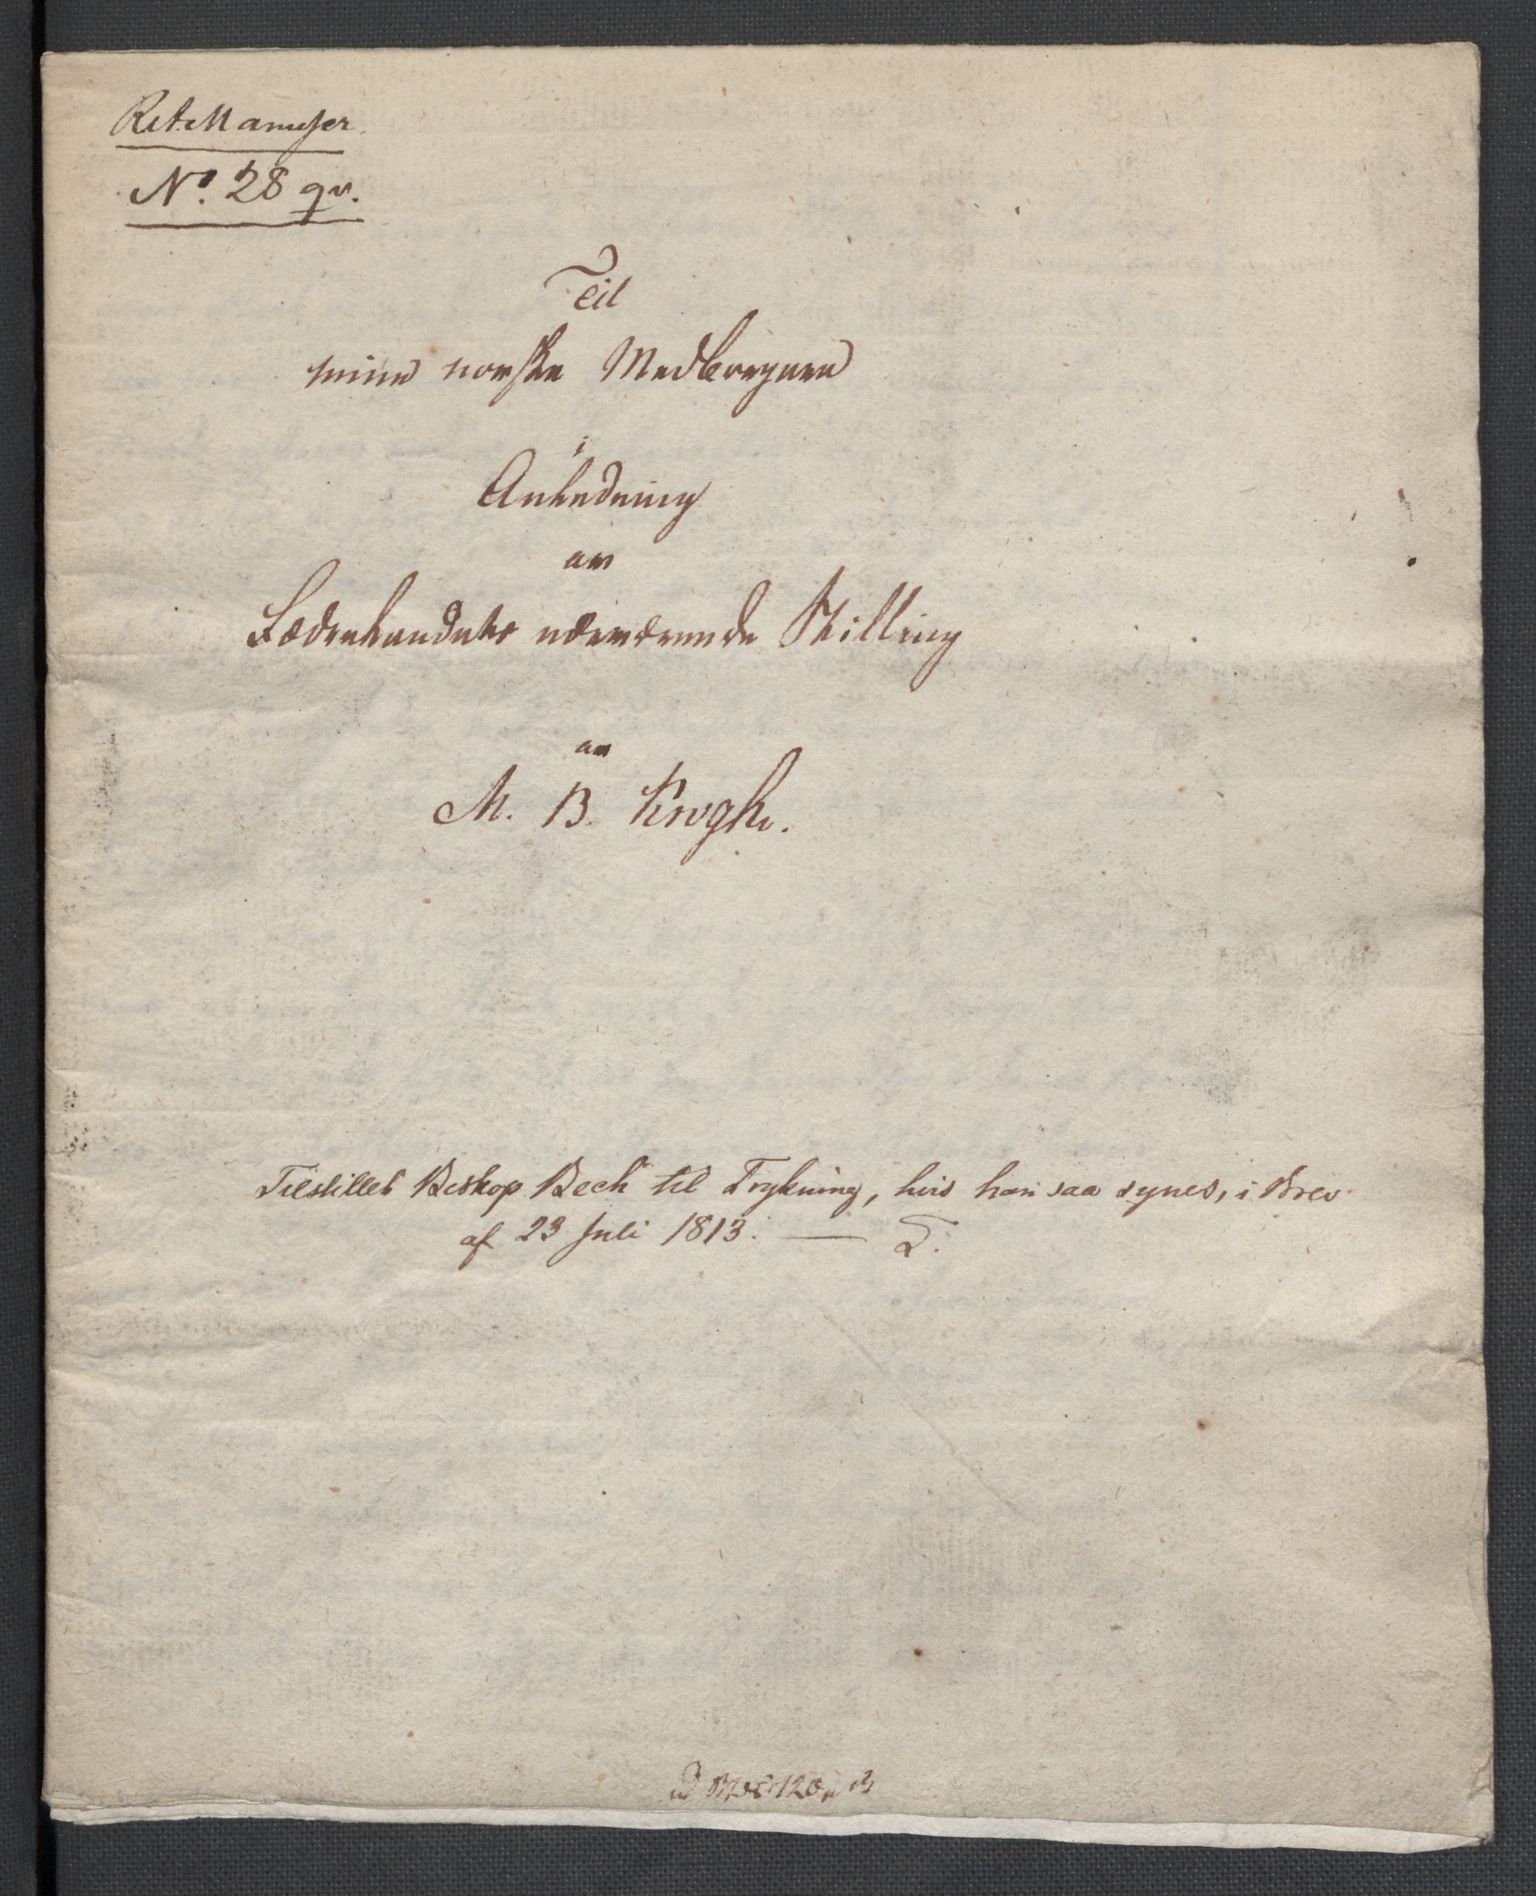 Ret. Manuscr.
No. 28 qv.
Til
mine norske Medborgere
i
Anledning
av
Fædrelandets nærværende Stilling
av
M. B. Krogh.
Tilstillet Biskop Bech til Trykning, hvis han saa synes, i Brev
af 23 Juli 1813. — T.